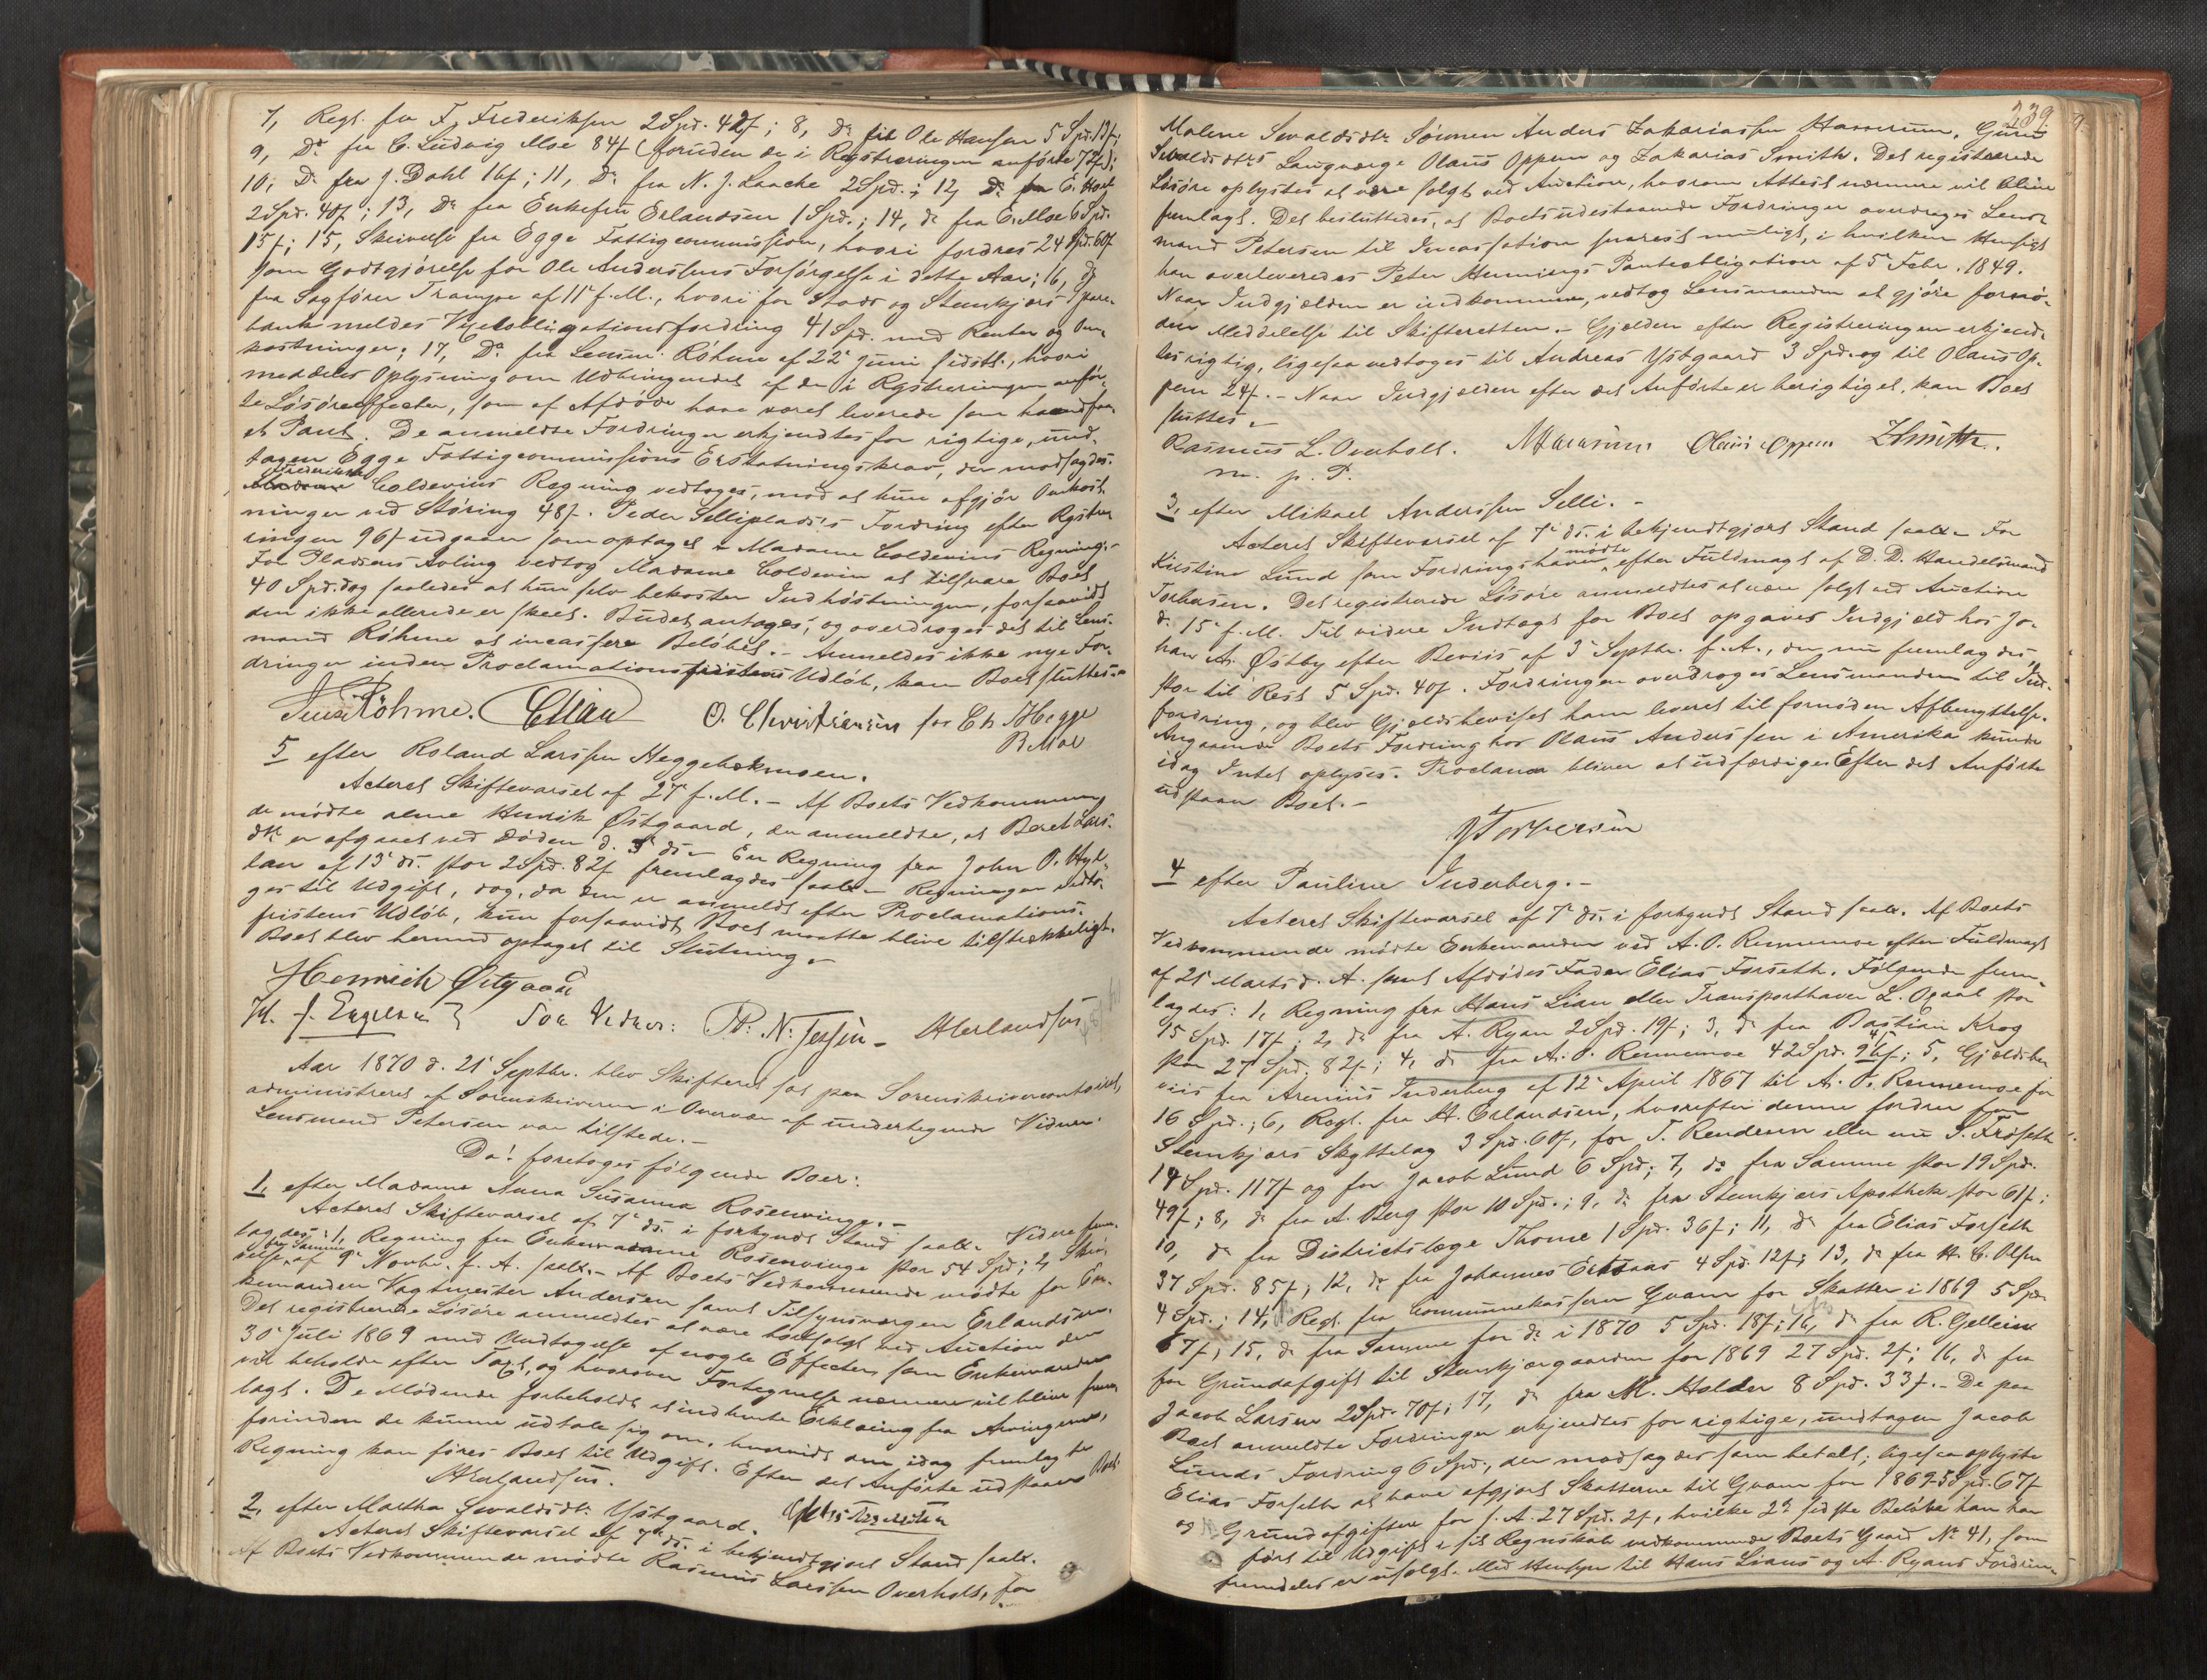 7, Regl. fra F. Frederiksen 2 Spd. 42 ſ; 8, Do fra Ole Hansen 5 Spd. 12 ſ;
9, Do fra C. Ludvig Moe 84 ſ (foruden de i Registreringen anførte 72 ſ);
10; Do fra J. Dahl 16 ſ; 11, Do fra N. J. Laache 2 Spd.; 12, Do fra E.
2 Spd. 40 ſ; 13, Do fra Enkefru Erlandsen 1 Spd.; 14, do fra E. Moe 6 Spd.
15 ſ; 15, Skrivelse fra Egge Fattigcommission, hvori fordres 24 Spd. 60 ſ
som Godtgjørelse for Ole Anderssens Forsørgelse i dette Aar; 16, do
fra Sagfører Trampe af 11te f. M., hvori for Stods og Stenkjærs Spare-
bank meldes Vexelobligationsfordring 41 Spd. med Renter og Om-
kostninger; 17, Do. fra Lensm. Röhme af 22de Juni sidstl., hvori
meddeles Oplysning om Udbringendet af de i Registreringen anfør-
te Løsøreeffecter, som af Afdøde have været leverede som haandfaa-
et Pant. De anmeldte Fordringer erkjendtes for rigtige, und-
tagen Egge Fattigcommissions Erstatningskrav, der modsagdes.
Frederikke
Coldevins Regning vedtoges, mod at hun afgjør Omkost-
ninger ved Støring 48 ſ. Peder Selliplads's Fordring efter Registre-
ringen 96 ſ udgaar som optaget i Madame Coldevins Regning.-
For Pladsens Avling vedtog Madame Coldevin at tilsvare Boet
40 Spd. dog saaledes at hun selv bekoster Indhøstningen, forsaavidt
den ikke allerede er skeet. Budet antoges, og overdroges det til Lens-
mand Röhme at incassere Beløbet. - Anmeldes ikke nye For-
dringer inden Proclamationsfristens Udløb, kan Boet sluttes. -
Jens Röhme. CLian O. Christiansen for Ch. Hegge
B Moe
5 efter Roland Larssen Heggebakmoen.
Acteret Skiftevarsel af 27de f. M. - Af Boets Vedkommen-
de mødte alene Henrik Østgaard, der anmeldte, at Beret Lars-
dtr. er afgaaet ved Døden d. 3de ds. - En Regning fra John O.
lan af 13de ds. stor 2 Spd. 82 ſ fremlagdes saal. - Regningen vedto-
ges til Udgift, dog, da den er anmeldt efter Proclamations-
fristens Udløb, kun forsaavidt Boet maatte blive tilstrækkeligt.
Boet blev hermed optaget til Slutning. -
Henrich Østgaard
H. J. Engelsen Som Vidner: P. N. Jessen - HErlandsen
Aar 1870 d. 21de Septbr. blev Skifteret sat paa Sorenskrivercontoiret,
administreret af Sorenskriveren i Overvær af undertegnede Vidner.
Lensmand Petersen var tilstede. -
Da! foretoges følgende Boer:
1, efter Madame Anna Susanna Rosenvinge. -
Acteret Skiftevarsel af 7de ds. i forkyndt Stand saal. Videre frem-
lagdes: 1, Regning fra Enkemadame Rosenvinge stor 54 Spd; 2, Skri-
fra Samme
velse af 9de Novbr. f. A. saal. - Af Boets Vedkommende mødte for En-
kemanden Vagtmester Andersen samt Tilsynsværgen Erlandsen.
Det registrerede Løsøre anmeldtes at være bortsolgt ved Auction den
30de Juli 1869 med Undtagelse af nogle Effecter, som Enkemanden
vil beholde efter Taxt, og hvorover Fortegnelse nærmere vil blive frem-
lagt. De Mødende forbeholdt at indhente Erklæring fra Arvingerne,
forinden de kunne udtale sig om, hvorvidt den idag fremlagte
Regning kan føres Boet til Udgift. Efter det Anførte udstaar Boet.
HErlandsen.
2, efter Martha Sevaldsdtr. Ystgaard.
Acteret Skiftevarsel af 7de ds. i bekjendtgjort Stand saal.
Af Boets Vedkommende mødte Rasmus Larssen Overholt, for
239
Malene Sevaldsdtr. Sønnen Anders Zakariassen Hammrum, Guru
Sevaldsdtrs Laugværge Olaus Oppem og Zakarias Smith. Det registrerede
Løsøre oplystes at være solgt ved Auction, hvorom Attest nærmere vil blive
fremlagt. Det besluttedes, at Boets udestaaende Fordringer overdrages Lens-
mand Petersen til Incassation snarest muligt, i hvilken Hensigt
han overleveredes Peter Hennings Panteobligation af 5te Febr. 1849.
Naar Indgjælden er indkommen, vedtog Lensmanden at gjøre fornø-
den Meddelelse til Skifteretten. - Gjælden efter Registreringen erkjend-
tes rigtig, ligesaa vedtoges til Andreas Ystgaard 3 Spd. og til Olaus Op-
pem 24 ſ. - Naar Indgjælden efter det Anførte er berigtiget, kan Boet
sluttes. -
Rasmus L. Overholt. Olaus Oppem ZSmith.
m. p. P.
3, efter Mikael Anderssen Selli. -
Acteret Skiftevarsel af 7de ds. i bekjendtgjort Stand saal. - For
mødte
Kirstine Lund som Fordringshaver efter Fuldmagt af D. D. Handelsmand
Torbersen. Det registrerede Løsøre anmeldtes at være solgt ved Auction
d. 15de f. M. Til videre Indtægt for Boet opgaves Indgjæld hos Jo-
han A. Østby efter Beviis af 3de Septbr. f. A., der nu fremlagdes,
stor til Rest 5 Spd. 40 ſ. Fordringen overdroges Lensmanden til Ind-
fordring, og blev Gjældsbeviset ham leveret til fornøden Afbenyttelse.
Angaaende Boets Fordring hos Olaus Anderssen i Amerika kunde
idag Intet oplyses. Proclama bliver at udfærdige. Efter det Anførte
udstaar Boet. -
4 efter Pauline Inderberg. -
Acteret Skiftevarsel af 7de ds. i forkyndt Stand saal. Af Boets
Vedkommende mødte Enkemanden ved A. O. Rennemoe efter Fuldmagt
af 25 Marts d. A. samt Afdødes Fader Elias Forseth. Følgende frem-
lagdes: 1, Regning fra Hans Lian eller Transporthaver L. Ogaat stor
15 Spd. 17 ſ; 2, do fra A. Ryan 2 Spd. 19 ſ; 3, do fra Bastian Krog
stor 27 Spd. 82 ſ; 4, do fra A. O. Rennemoe 42 Spd. 96 ſ; 5, Gjældsbe-
viis fra Arenius Inderberg af 12te April 1867 til A. O. Rennemoe for
16 Spd.; 6, Regl. fra H. Erlandsen, hvorefter denne fordrer for
Stenkjærs Skyttelag 3 Spd. 60 ſ, for T. Rendrum eller nu S. Frøseth
14 Spd. 117 ſ og for Jacob Lund 6 Spd; 7, do fra Samme stor 19 Spd.
49 ſ; 8, do fra A. Berg stor 10 Spd.; 9, do fra Stenkjærs Apothek stor 61 ſ;
10, do fra Districtslæge Thome 1 Spd. 36 ſ; 11, do fra Elias Forseth
37 Spd. 85 ſ; 12, do fra Johannes Ertsaas 4 Spd. 12 ſ; 13, do fra H. C. Olsen
4 Spd.; 14, Regl. fra Communekasseren Qvam for Skatter i 1869 5 Spd.
67 ſ; 15, do fra Samme for do i 1870 5 Spd. 18 ſ; 16, do fra R. Gellein
for Grundafgift til Stenkjærgaarden for 1869 27 Spd. 2 ſ; 16, do fra
Jacob Larsen 2 Spd. 70 ſ; 17, do fra M. Holder 8 Spd. 33 ſ. - De paa
Boet anmeldte Fordringer erkjendtes for rigtige, undtagen Jacob
Lunds Fordring 6 Spd., der modsagdes som betalt; ligesaa oplyste
Elias Forseth at have afgjort Skatterne til Qvam for 1869 5 Spd. 67 ſ
og Grundafgiften for s. A. 27 Spd. 2 ſ, hvilke 2de sidste Beløbe han har
ført til Udgift i sit Regnskab vedkommende Boets Gaard No 41, som
fremdeles er usolgt. Med Hensyn til Hans Lians og A. Ryans Fordrin-